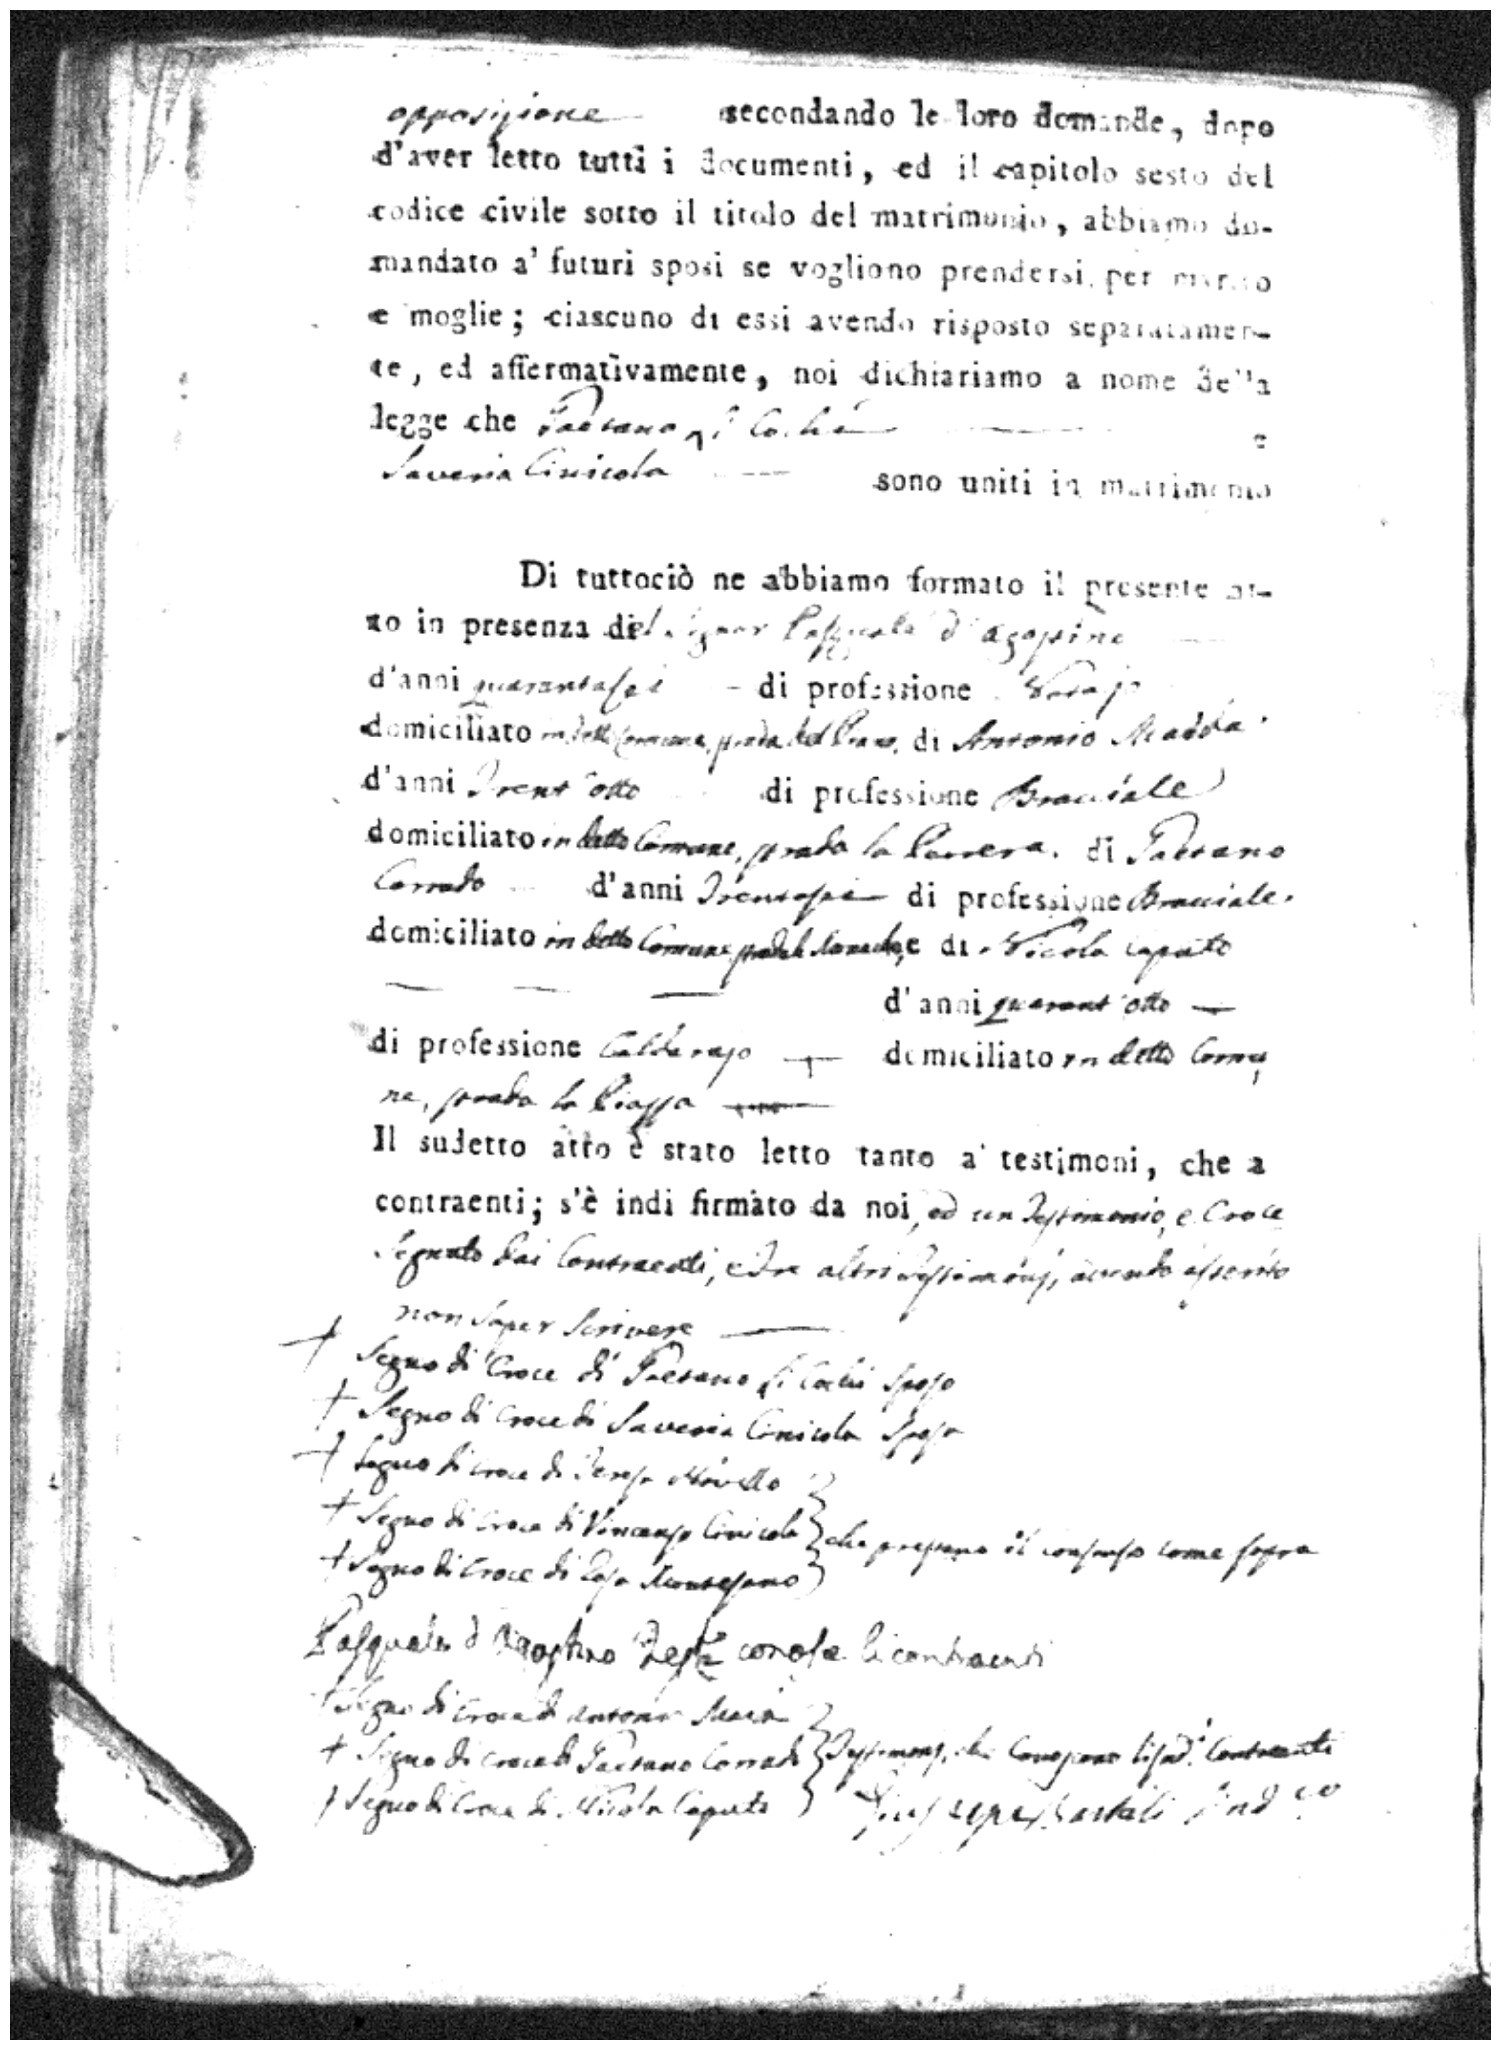 opposizione secondando le loro domande, dopo
d'aver letto tutti i documenti, ed il capitolo sesto del
codice civile sotto il titolo del matrimonio, abbiamo do-
mandato a' futuri sposi se vogliono prendersi per marito
e moglie; ciascuno di essi avendo risposto separatamen-
te, ed affermativamente, noi dichiariamo a nome della
legge che Gaetano e
Saveria Cinicola sono uniti in matrimonio
Di tuttociò ne abbiamo formato il presente at-
to in presenza del Signor Pasquale d'Agostino
d'anni quarantasei di professione
domiciliato in detto Comune, strada del Piano, di Antonio
d'anni Trent'otto di professione Bracciale
domiciliato in detto Comune, strada la di Gaetano
Corrado d'anni Trentasei di professione Bracciale.
domiciliato in detto Comune e di Nicola Caputo
d'anni quarant'otto
di professione Calderajo domiciliato in detto Comu,
ne, strada la Piazza
Il sudetto atto è stato letto tanto a' testimoni, che a
contraenti; s'è indi firmato da noi, ed un Testimonio, e Croce
Segnato dai Contraenti, e Tre altri Testimonj, avendo asserito
non saper Scrivere
+ Segno di Croce di Gaetano Sposo
+ Segno di Croce di Saveria Cinicola Sposa
+ Segno di Croce di Teresa
+ Segno di Croce di Vincenzo Cinicola che prestano il consenso come sopra
+ Segno di Croce di Rosa Montesano
Pasquale d'Agostino conosce li contraenti
+ Segno di Croce di Antonio
+ Segno di Croce di Gaetano Corrado Testimonj, che Conoscono Contraenti
+ Segno di Croce di Nicola Caputo Giuseppe Sindaco